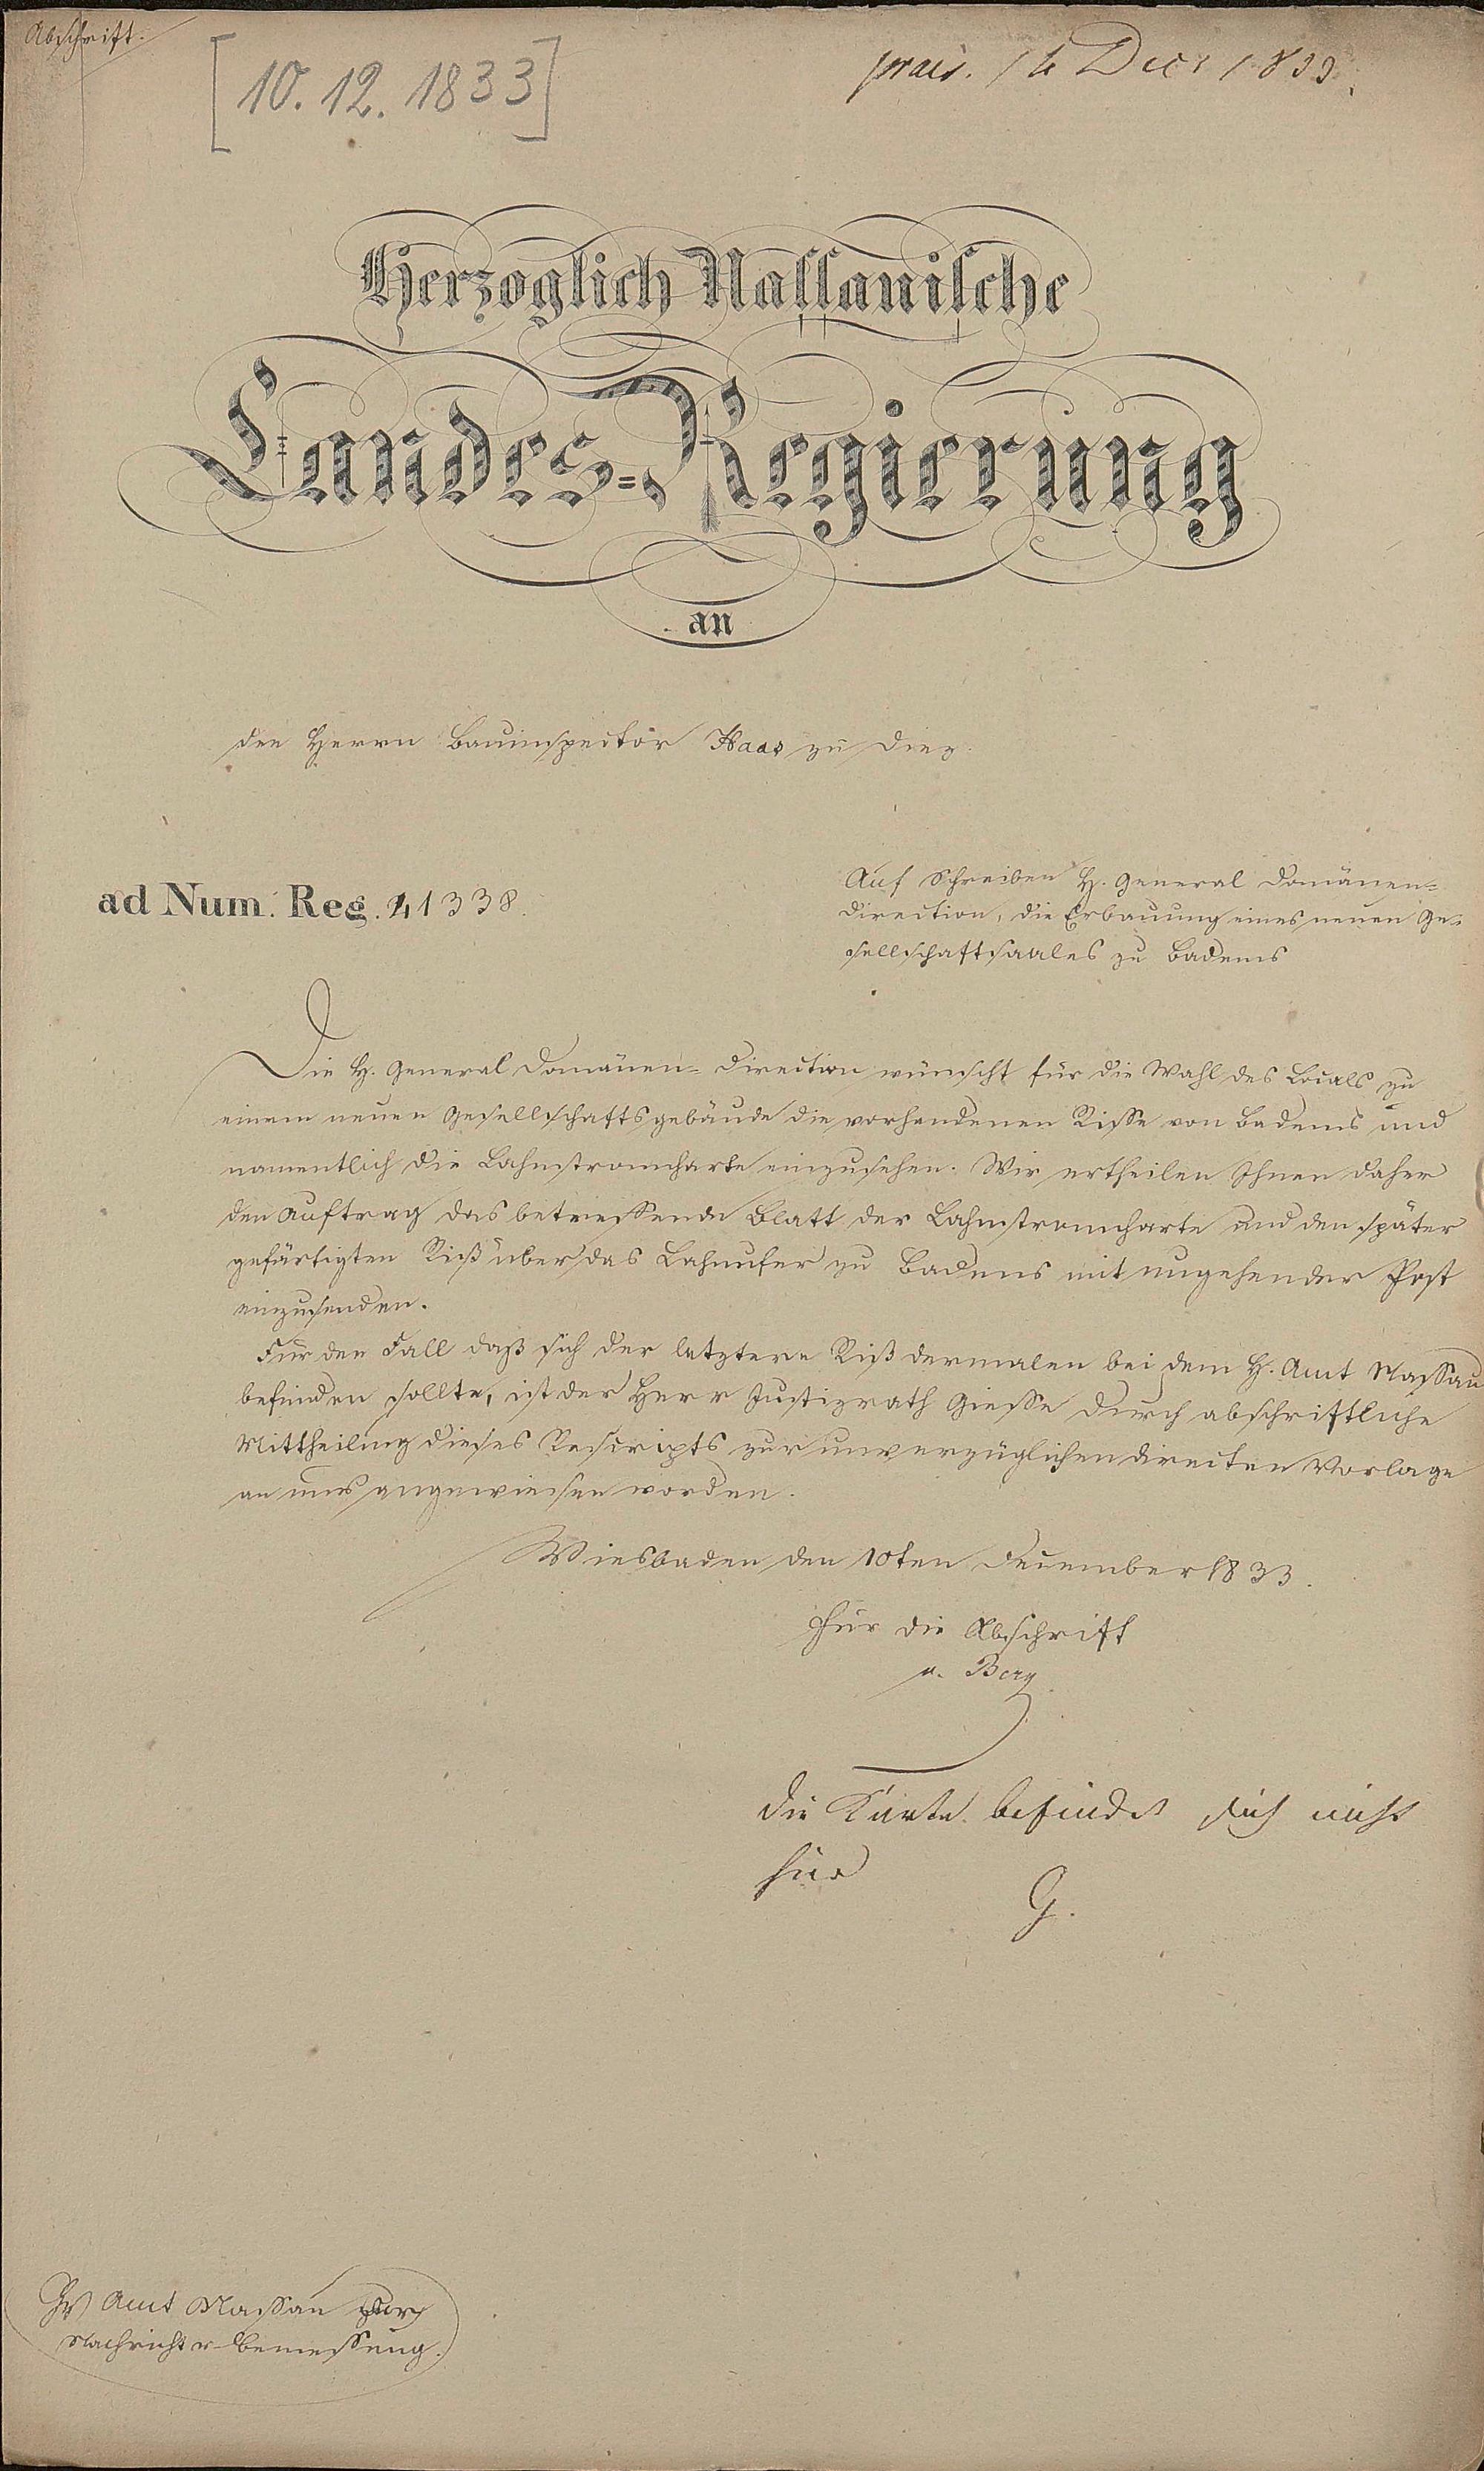 Abschrift.
[10. 12. 1833]
praes. 14 Decr 1833.
Herzoglich Nassauische
Landes-Regierung
an
den Herrn Bauinspector Haas zu Diez.
ad Num. Reg. 41338.
Auf Schreiben H. General Domänen-
direction, die Erbauung eines neuen Ge-
sellschaftsaales zu Badems
Die H. General Domänen-Direction wünscht für die Wahl des Locals zu
einem neuen Gesellschaftsgebäude die vorhandenen Risse von Badems und
namentlich die Lahnstromcharte einzusehen. Wir ertheilen Ihnen daher
den Auftrag das betreffende Blatt der Lahnstromcharte und den später
gefärtigten Riß über das Lahnufer zu Badems mit umgehender Post
einzusenden.
Für den Fall daß sich der letztere Riß dermalen bei dem H. Amt Nassau
befinden sollte, ist der Herr Justizrath Giesse durch abschriftliche
Mittheilung dieses Rescripts zur unverzüglichen directen Vorlage
an uns angewiesen worden.
Wiesbaden den 10ten December 1833.
Für die Abschrift
v. Berg
Die Karte befindet sich nicht
hier
G.
Hz Amt Nassau zur
Nachricht u Bemessung.